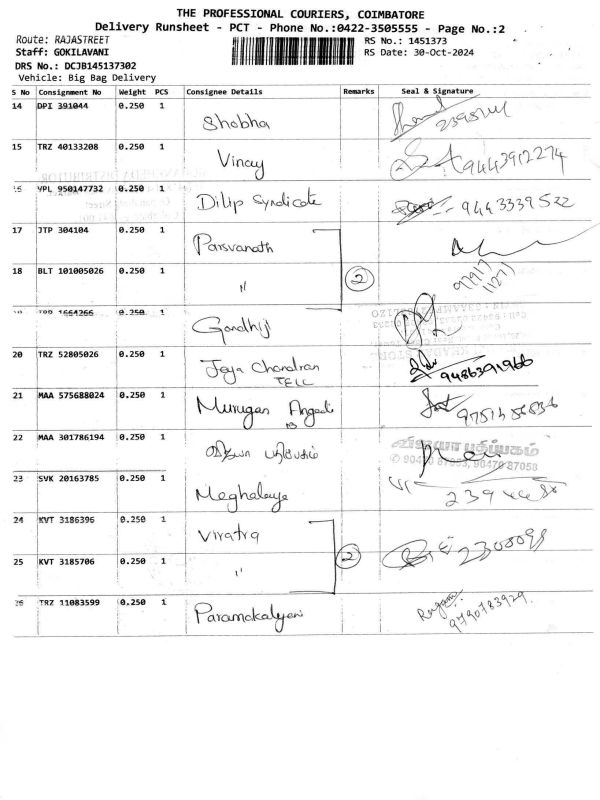 THE PROFESSIONAL COURIERS, COIMBATORE
Delivery Runsheet - PCT - Phone No.:0422-3505555 - Page No.:2
Route: RAJASTREET
RS No.: 1451373
Staff: GOKILAVANI
RS Date: 30-Oct-2024
DRS No.: DCJB145137302
Vehicle: Big Bag Delivery
S No Consignment No Weight PCS Consignee Details Remarks Seal & Signature
14 DPI 391044 0.250 1 Shobha
15 TRZ 40133208 0.250 1 Vinay 9443912274
16 VPL 950147732 0.250 1 Dilip Syndicate 9443339522
17 JTP 304104 0.250 1 Parsvanath
18 BLT 101005026 0.250 1 " 2 97917 11271
1664266 0.250 1 Gandhiji
20 TRZ 52805026 0.250 1 Jaya Chandran TELC 9486391966
21 MAA 575688024 0.250 1 Murugan Angadi
22 MAA 301786194 0.250 1 விஜயா பதிப்பகம் விஜயா பதிப்பகம்
✆ 90470 87053, 90470 87058
23 SVK 20163785 0.250 1 Meghalaya
24 KVT 3186396 0.250 1 Viratra
25 KVT 3185706 0.250 1 " 2
26 TRZ 11083599 0.250 1 Paramakalyani 9790783929